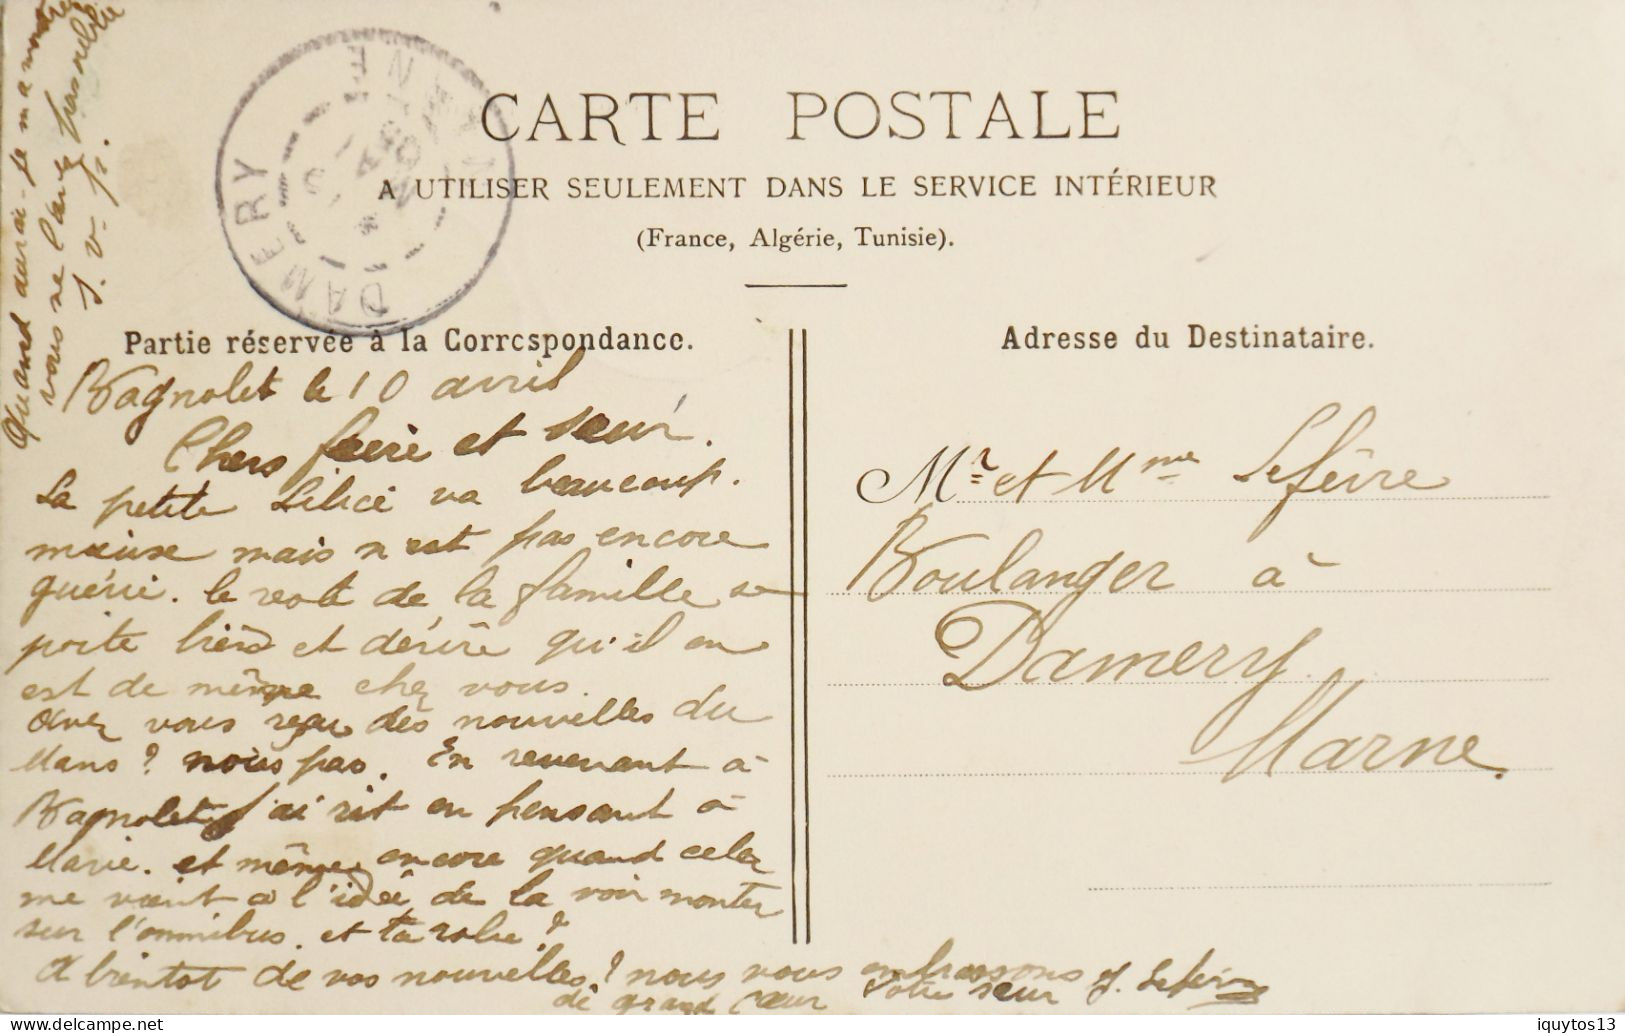 CARTE POSTALE
A UTILISER SEULEMENT DANS LE SERVICE INTÉRIEUR
(France, Algérie, Tunisie).
DAMERY
MARNE
Partie réservée à la Correspondance.
Adresse du Destinataire.
Quand aurai-je ma montre
vous ne l'avez pas oublié
S. v. p.
Bagnolet le 10 avril
Chers frère et seur.
La petite va beaucoup
mieux mais n'est pas encore
guérie. le reste de la famille se
porte bien et désire qu'il en
est de même chez vous.
Avez vous reçu des nouvelles du
Mans ? nous pas. En revenant à
Bagnolet j'ai rit en pensant à
Marie. et même encore quand cela
me vient à l'idée de la voir monter
sur l'omnibus. et ta robe ?
A bientot de vos nouvelles ? nous vous embrassons
de grand cœur Votre seur J. Lefèvre
Mr et Mme Lefèvre
Boulanger à
Damery
Marne.
iquytos13